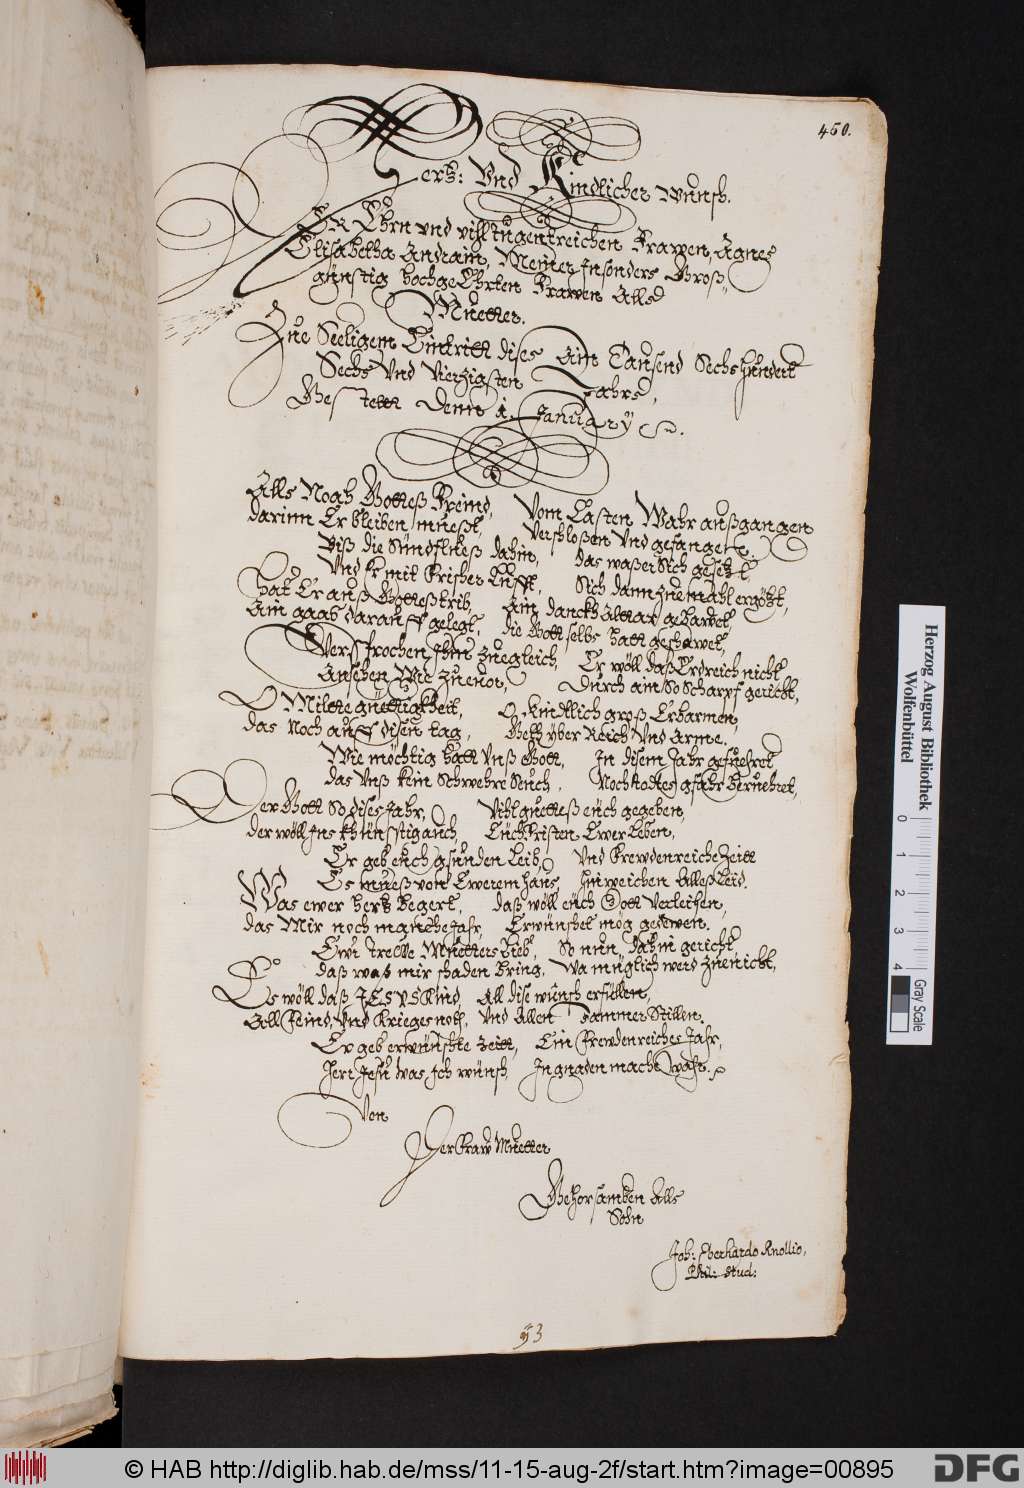 460.
Hertz: Und Kindlicher Wunsch.
Der Ehrn und vill tugentreichen Frawen, Agnes
Elisabetha Andræin, Meiner Insonders Groß„
günstig hochgeEhrten Frawen Alls
Muetter.
Zue Seeligem Eintritt dises Ain Tausend Sechshundert
Sechs Und Vierzigsten Jahrs,
Gestellt Denn 1. January
Alls Noah Gotteß Freind, Vom Casten Wahr außgangen
darinn Er bleiben mueßt, Verschloßen Und gefangen.
Biß die Sündfluteß dahin, das waßer sich gesetzt
Und Er mit Frischer Lufft, Sich dann zuemahl ergötzt,
Hat Er auß Gotteß trib, Ain danckh Alltar gebawet
Ain gaab darauff gelegt, die Gott selbs hatt geschawet,
Versprochen Ihm zuegleich, Er wöll daß Erdreich nicht
Ansehen Wie zuevor, Durch ain so scharpf gericht,
O Millte güettigkheit, O kindtlich groß Erbarmen,
das Noch auff disen tag, Geht yber Reich Und Arme.
Wie mächtig hatt Unß Gott, In disem Jahr gefüehret
das Unß kein Schwehre Seuch, Noch todtes gfahr berüehret,
Der Gott so dises Jahr, Vihl guetteß euch gegeben,
der wöll Ins khünfftig auch, Euch Fristen Ewer Leben,
Er geb euch gsunden Leib, Und Frewdenreiche Zeitt
Es mueß von Ewerem Hauß, Hinweichen Alleß Leid.
Was ewer hertz begert, daß wöll euch Gott Verleihen,
das Mir noch manche Jahr, Erwünschet mög gedewen.
Ewr trewe Muetters Lieb, So nun dahin gericht
daß waß mir schaden bring, Wa müglich werd zuenicht,
Es wöll daß JESUS Kind, All dise wünsch erfüllen,
All Feind, Und Kriegesnoth, Und Allen Jammer Stillen.
Er geb erwünschte Zeitt, Ein Frewdenreiches Jahr,
Herr Jesu was Ich wünsch, In gnaden mache wahr.
Von
Der Fraw Muetter
Gehorsambten Alls
Sohn
Joh: Eberhardo Knollio,
Phil: Stud:
Herzog August Bibliothek
Wolfenbüttel
0 1 2 3 4
Gray Scale
© HAB http://diglib.hab.de/mss/11-15-aug-2f/start.htm?image=00895
DFG